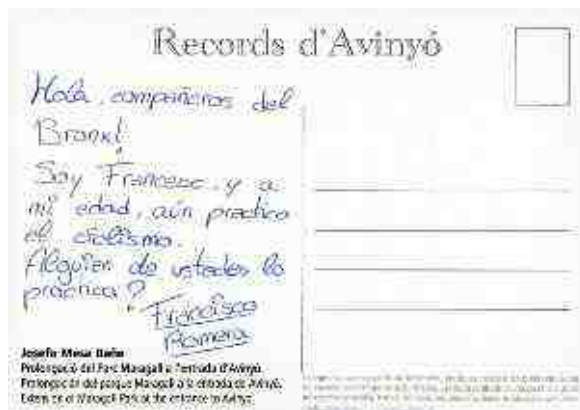 Records d'Avinyó
Hola, compañeros del
Bronx!
Soy Francesc y a
mi edad, aún practico
el ciclismo.
Alguien de ustedes lo
practica?
Francisco
Romera
Josefa Mesa
Prolongació del Parc Maragall a l'entrada d'Avinyó.
Prolongación del parque Maragall a la entrada de Avinyó.
Extension of Maragall Park at the entrance to Avinyó.